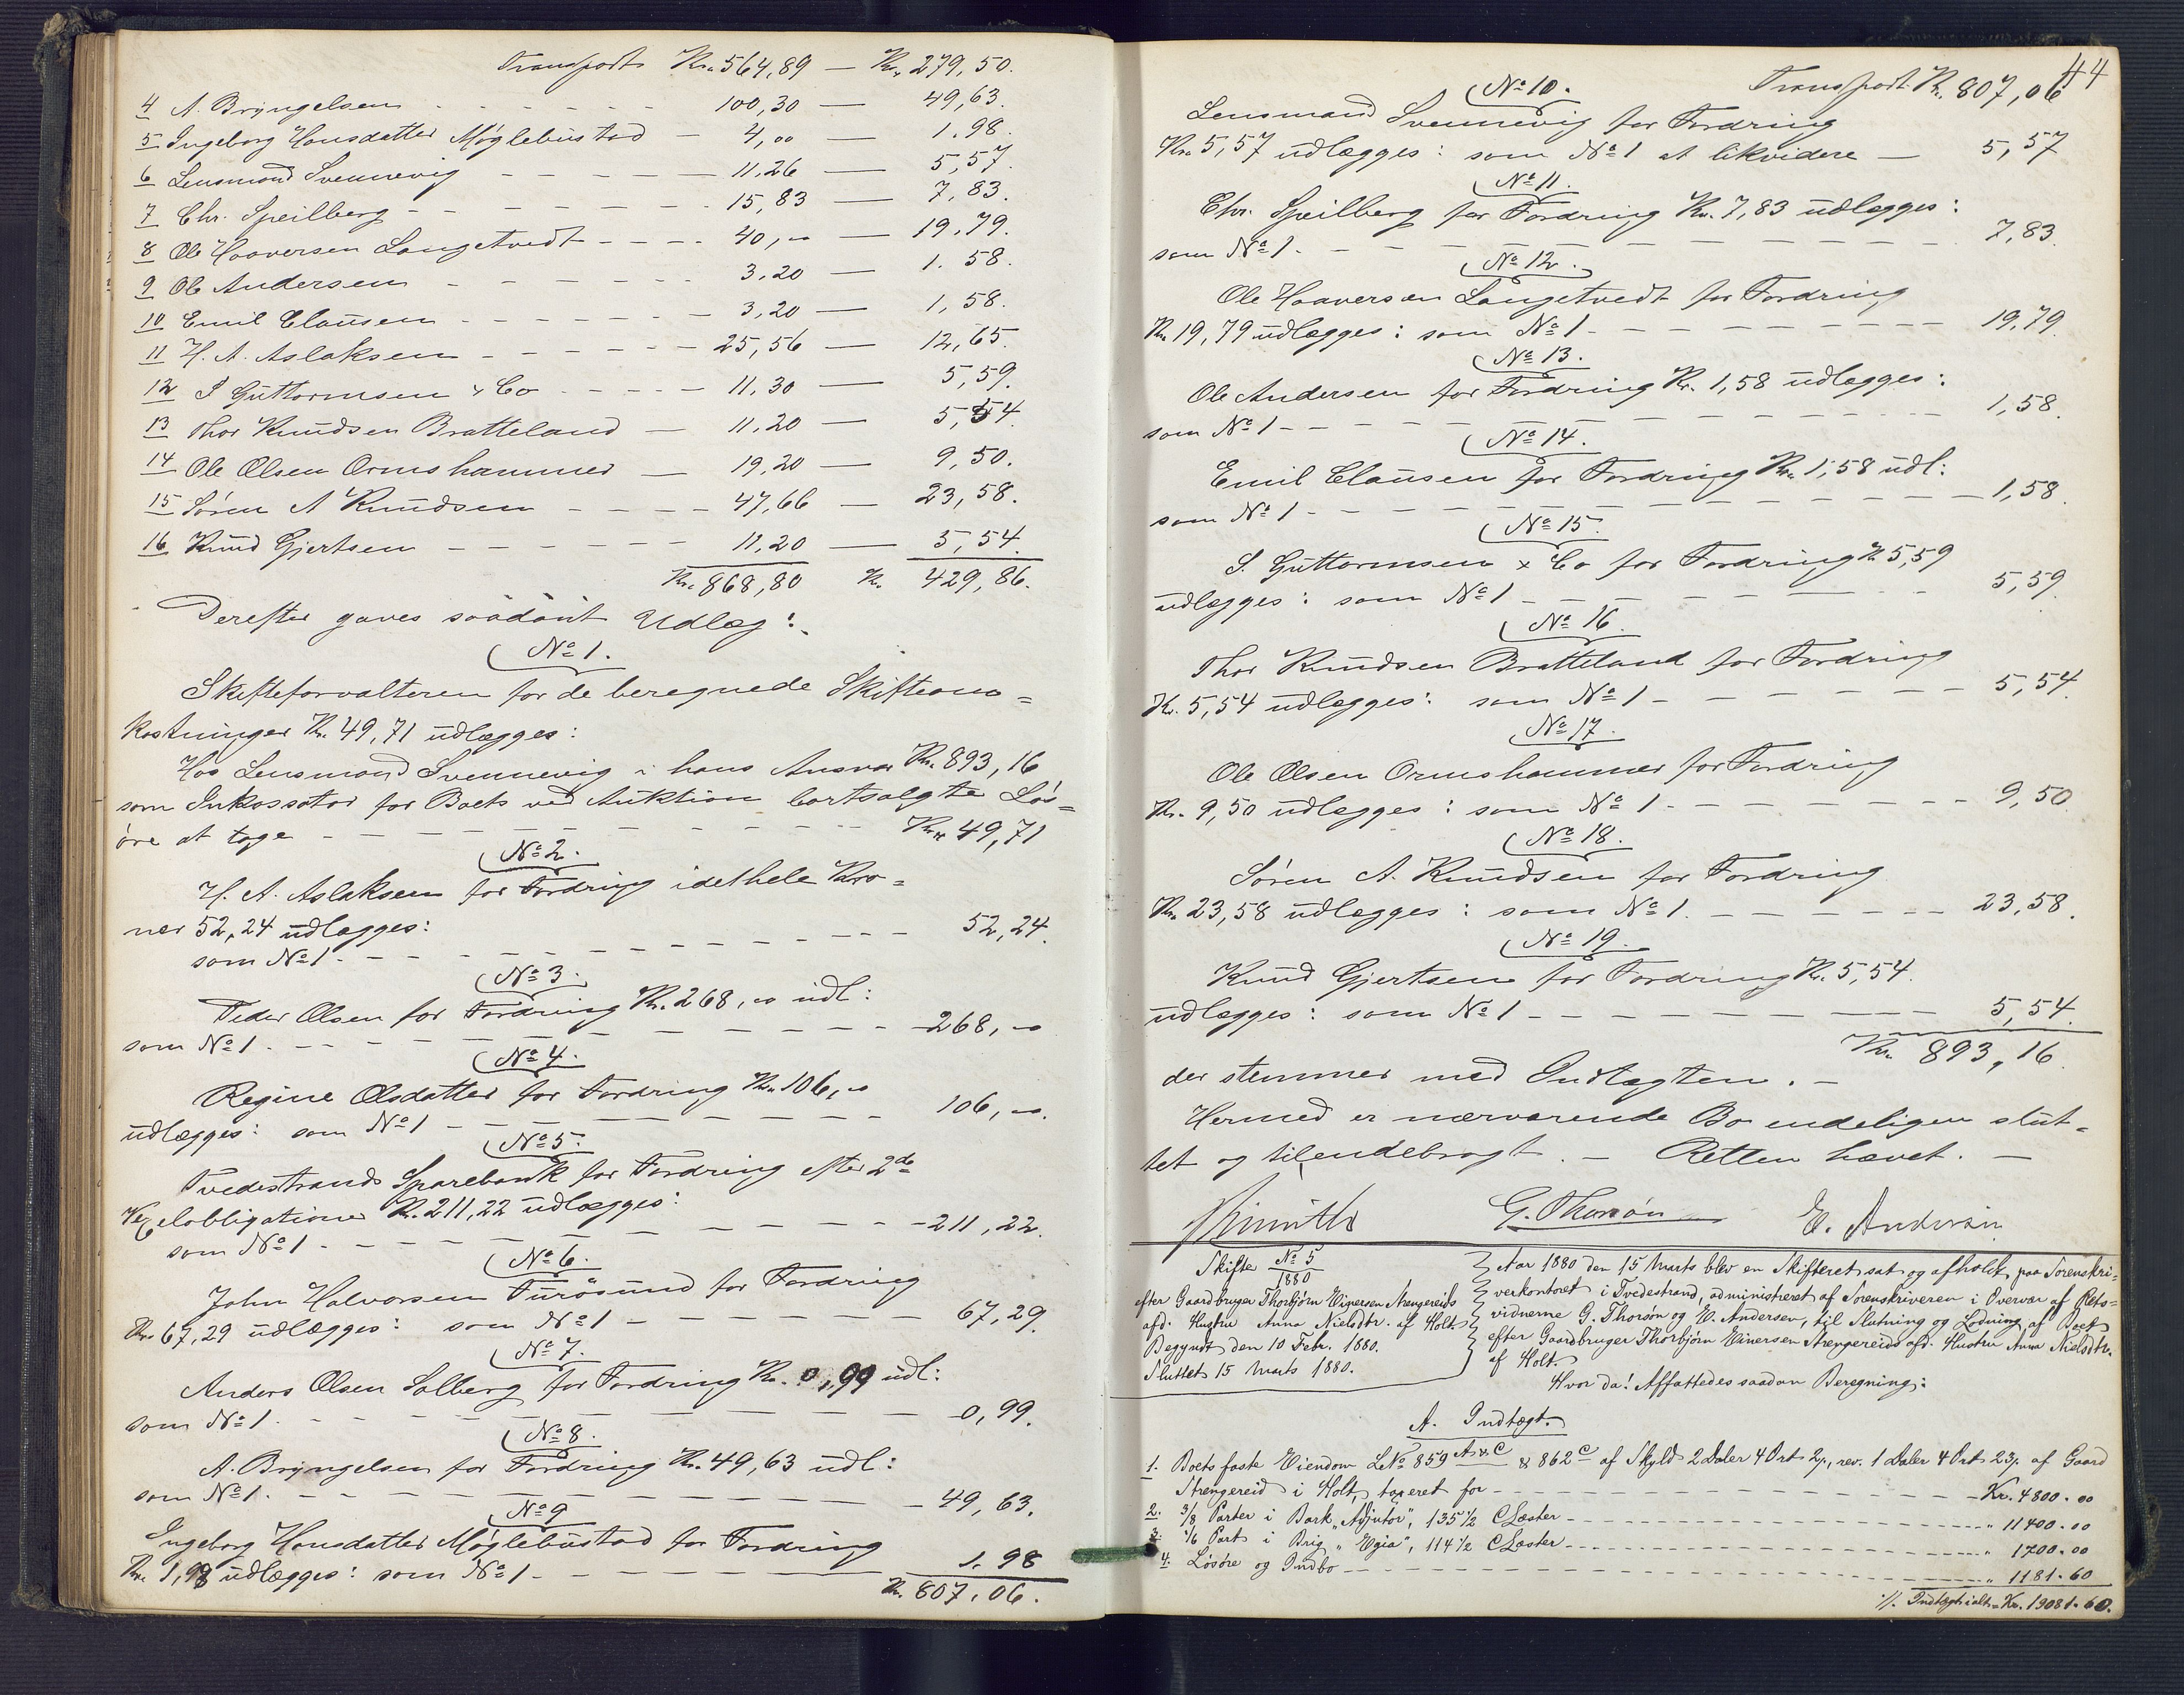 Transport Kr. 564,89 — Kr. 279,50.
4 A. Bryngelsen - - - - - - 100,30 — 49,63.
5 Ingeborg Hansdatter Møglebustad - 4,00 — 1.98.
6 Lensmand Svennevig - - - - - 11,26 — 5,57.
7 Chr. Speilberg - - - - - - - 15,83 — 7,83.
8 Ole Haaversen Langetvedt - - - - 40,00 — 19,79.
9 Ole Andersen - - - - - - 3,20 — 1.58.
10 Emil Clausen - - - - - - - 3,20 — 1,58.
11 H. A. Aslaksen - - - - - - 25,56 — 12,65.
12 S Guttormsen & Co - - - - - 11,30 — 5,59.
13 Thor Knudsen Bratteland — 11,20 — 5,54.
14 Ole Olsen Ormshammer — 19,20 — 9,50.
15 Søren A Knudsen - - - - - 47,66 — 23,58.
16 Knud Gjertsen - - - - - - 11,20 — 5,54.
Kr. 868,80 Kr. 429,86.
Derefter gaves saadant Udlæg:
No 1.
Skifteforvalteren for de beregnede Skifteom=
kostninger Kr. 49,71 udlægges:
Hos Lensmand Svennevig i hans Ansvar Kr. 893,16
som Inkassator for Boets ved Auktion bortsolgte Løs=
øre at tage - - - - - - - - - Kr. 49,71
No 2.
H. A. Aslaksen for Fordring idethele Kro=
ner 52,24 udlægges:
som No 1. - - - - - - - - - 52,24.
No 3.
Peder Olsen for Fordring Kr. 268,00 udl:
som No 1. - - - - - - - - - 268,00
No 4.
Regine Olsdatter for Fordring Kr. 106,00
udlægges: som No 1 - - - - - - - 106,00.
No 5.
Tvedestrands Sparebank for Fordring efter 2de
Vexelobligationer Kr. 211,22 udlægges:
som No 1. - - - - - - - - - 211,22.
No 6.
John Halvorsen Furøsund for Fordring
Kr. 67,29 udlægges: som No 1 - - - - - 67,29.
No 7.
Anders Olsen Solberg for Fordring Kr. 0,99 udl:
som No 1. - - - - - - - - - 0,99.
No 8.
A. Bryngelsen for Fordring Kr. 49,63 udl:
som No 1. - - - - - - - - - 49,63.
No 9
Ingeborg Hansdatter Møglebustad for Fordring
Kr. 1,98 udlægges: som No 1 - - - - - 1.98
Kr. 807,06.
44
Transport Kr. 807,06
No 10.
Lensmand Svennevig for Fordring
Kr. 5,57 udlægges: som No 1 at likvidere — 5,57
No 11.
Chr. Speilberg for Fordring Kr. 7,83 udlægges:
som No 1. - - - - - - - - - 7,83.
No 12.
Ole Haaversen Langetvedt for Fordring
Kr. 19,79 udlægges: som No 1 - - - - - - 19,79.
No 13.
Ole Andersen for Fordring Kr. 1,58 udlægges:
som No 1 - - - - - - - - - 1,58.
No 14.
Emil Clausen for Fordring Kr. 1,58 udl:
som No 1 - - - - - - - - - 1,58.
No 15.
S. Guttormsen & Co for Fordring Kr 5,59
udlægges: som No 1 - - - - - - - 5,59.
No 16.
Thor Knudsen Bratteland for Fordring
Kr. 5,54 udlægges: som No 1 - - - - - 5,54.
No 17.
Ole Olsen Ormshammer for Fordring
Kr. 9,50 udlægges: som No 1 - - - - - - 9,50
No 18.
Søren A. Knudsen for Fordring
Kr. 23,58 udlægges: som No 1. - - - - - 23,58.
No 19.
Knud Gjertsen for Fordring Kr. 5,54.
udlægges: som No 1 - - - - - - - 5,54.
Kr. 893,16.
der stemmer med Indtægten. —
Hermed er nærværende Bo endeligen slut=
tet og tilendebragt. — Retten hævet. —
G. Thorsøn E. Andersen
Skifte No 5
1880
efter Gaardbruger Thorbjørn Einersen Strengereids
afd. Hustru Anna Nielsdtr. af Holt.
Begyndt den 10 Febr. 1880.
Sluttet 15 Marts 1880.
Aar 1880 den 15 Marts blev en Skifteret sat og afholdt paa Sorenskri=
verkontoret i Tvedestrand, administreret af Sorenskriveren i Overvær af Rets=
vidnerne G. Thorsøn og E. Andersen, til Slutning og Lodning af Boet
efter Gaardbruger Thorbjørn Einersen Strengereids afd. Hustru Anna Nielsdtr.
af Holt.
Hvor da! Affattedes saadan Beregning:
A. Indtægt.
1. Boets faste Eiendom L.No 859 A & C & 862 C af Skyld 2 Daler 4 Ort 2ẞ, rev. 1 Daler 4 Ort 23ẞ. af Gaard
Strengereid i Holt, taxeret for - - - - - - - Kr. 4800.00
2. 3/8 Parter i Bark "Adjutor", 135 1/2 C Læster - - - - - " 11400.00
3. 1/6 Part i Brig "Egia", 114 1/2 C Læster - - - - - " 1700.00
4. Løsøre og Indbo - - - - - - - " 1181.60
./. Indtægt ialt = Kr. 19081.60.